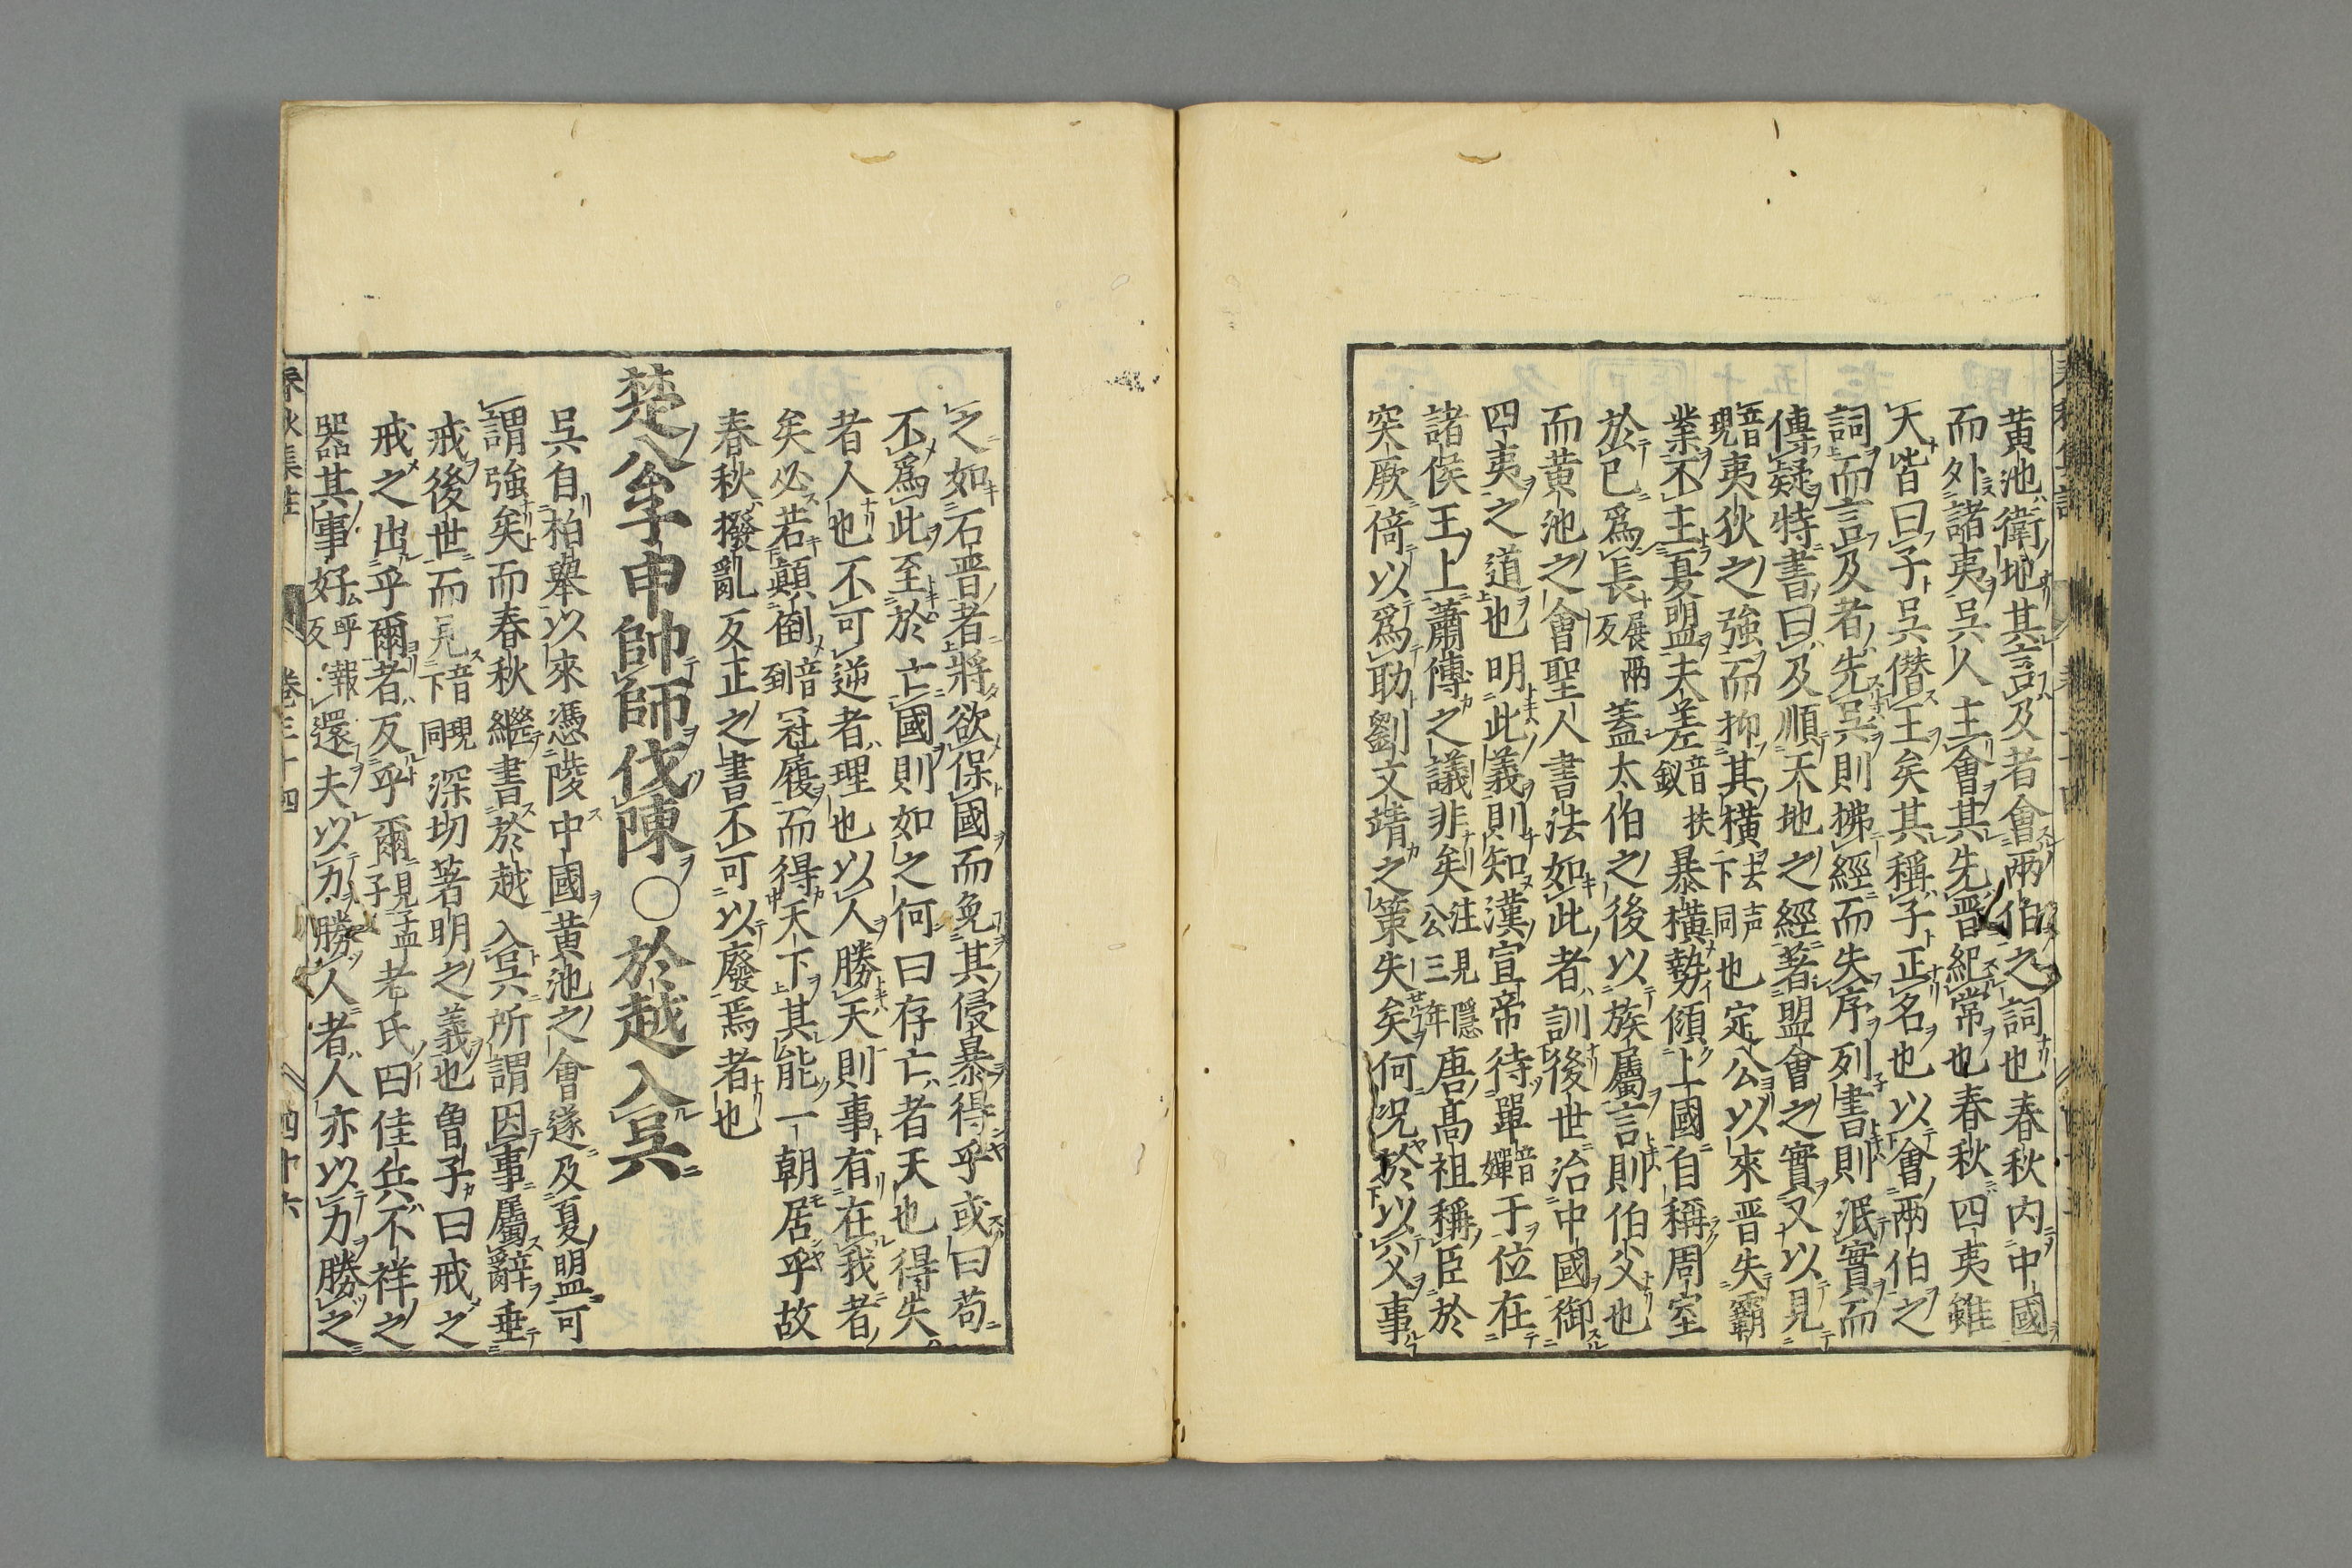 黄池衛地其言及者會兩伯之詞也春秋内中國
而外諸夷吳人主會其先晋紀常也春秋四夷雖
大皆曰子吳僣王矣其稱子正名也以會兩伯之
詞而言及者先吳則拂經而失序列書則泯實而
傳疑特書曰及順天地之經著盟會之實又以見
音現夷狄之強而抑其横去声下同也定公以來晋失霸
業不主夏盟夫差音扶釵暴横勢傾上國自稱周室
於已爲長展兩反蓋太伯之後以族屬言則伯父也
而黄池之會聖人書法如此者訓後世治中國御
四夷之道也明此義則知漢宣帝待單音嬋于位在
諸侯王上蕭傅之議非矣注見隱公三年唐髙祖稱臣於
突厥倚以爲助劉文靖之策失矣何況於以父事
之如石晋者將欲保國而免其侵暴得乎或曰苟
不爲此至於亡國則如之何曰存亡者天也得失
者人也不可逆者理也以人勝天則事有在我者
矣必若顛倒音到冠履而得天下其能一朝居乎故
春秋撥亂反正之書不可以廢焉者也
楚公子申帥師伐陳○於越入吳
吳自柏舉以來憑陵中國黄池之會遂及夏盟可
謂強矣而春秋繼書於越入吳所謂因事屬辭垂
戒後世而見音現下同深切著明之義也曽子曰戒之
戒之出乎爾者反乎爾見孟子老氏曰佳兵不祥之
器其事好呼報反還夫以力勝人者人亦以力勝之
春秋集註 卷三十四 四十六